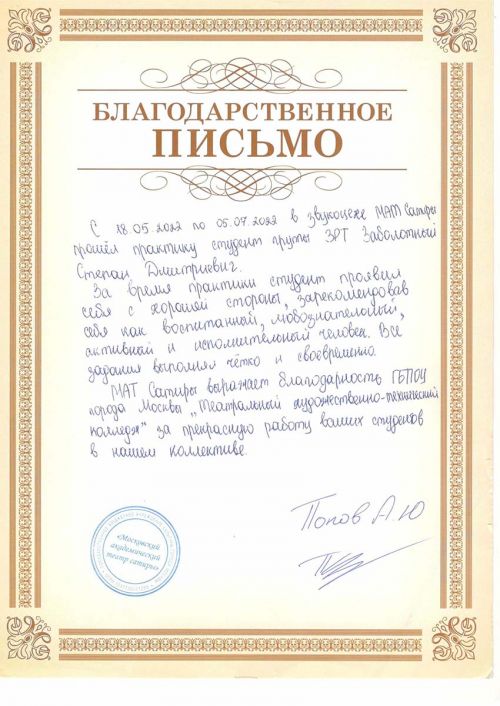 БЛАГОДАРСТВЕННОЕ
ПИСЬМО
С 18.05.2022 по 05.07.2022 в звукоцехе МАТ Сатиры
прошёл практику студент группы 3РТ Заболотный
Степан Дмитриевич.
За время практики студент проявил
себя с хорошей стороны, зарекомендовав
себя как воспитанный, любознательный,
активный и исполнительный человек. Все
задания выполнял чётко и своевременно.
МАТ Сатиры выражает благодарность ГБПОУ
города Москвы „Театральный художественно-технический
колледж" за прекрасную работу ваших студентов
в нашем коллективе.
Попов А.Ю
«Московский
академический
театр сатиры»